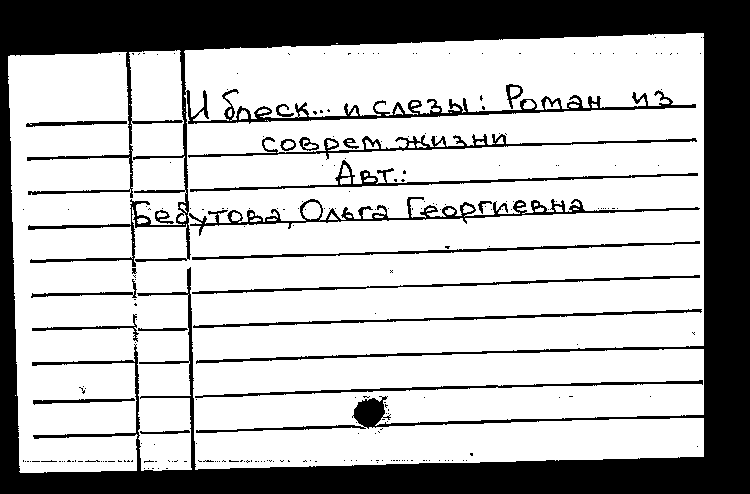 И блеск... и слезы: Роман из
соврем. жизни
Авт.:
Бебутова, Ольга Георгиевна